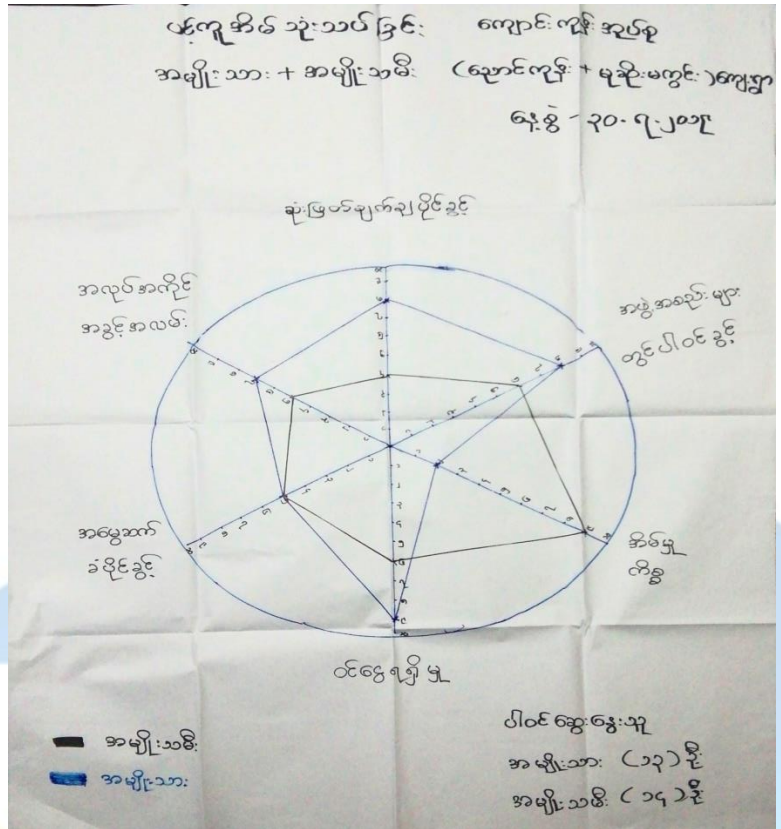 ပင့်ကူအိမ် သုံးသပ်ခြင်း ကျောင်းကုန်းအုပ်စု
အမျိုးသား + အမျိုးသမီး (ညောင်ကုန်း + မုဆိုးမကွင်း) ကျေးရွာ
နေ့စွဲ - ၃၀.၇.၂၀၁၉
ဆုံးဖြတ်ချက်ချပိုင်ခွင့်
အလုပ်အကိုင်
အခွင့်အလမ်း
အဖွဲ့အစည်းများ
တွင်ပါဝင်ခွင့်
အမွေဆက်
ခံပိုင်ခွင့်
အိမ်မှု
ကိစ္စ
ဝင်ငွေရရှိမှု
အမျိုးသမီး
အမျိုးသား
ပါဝင်ဆွေးနွေးသူ
အမျိုးသား (၁၃) ဦး
အမျိုးသမီး (၁၄) ဦး